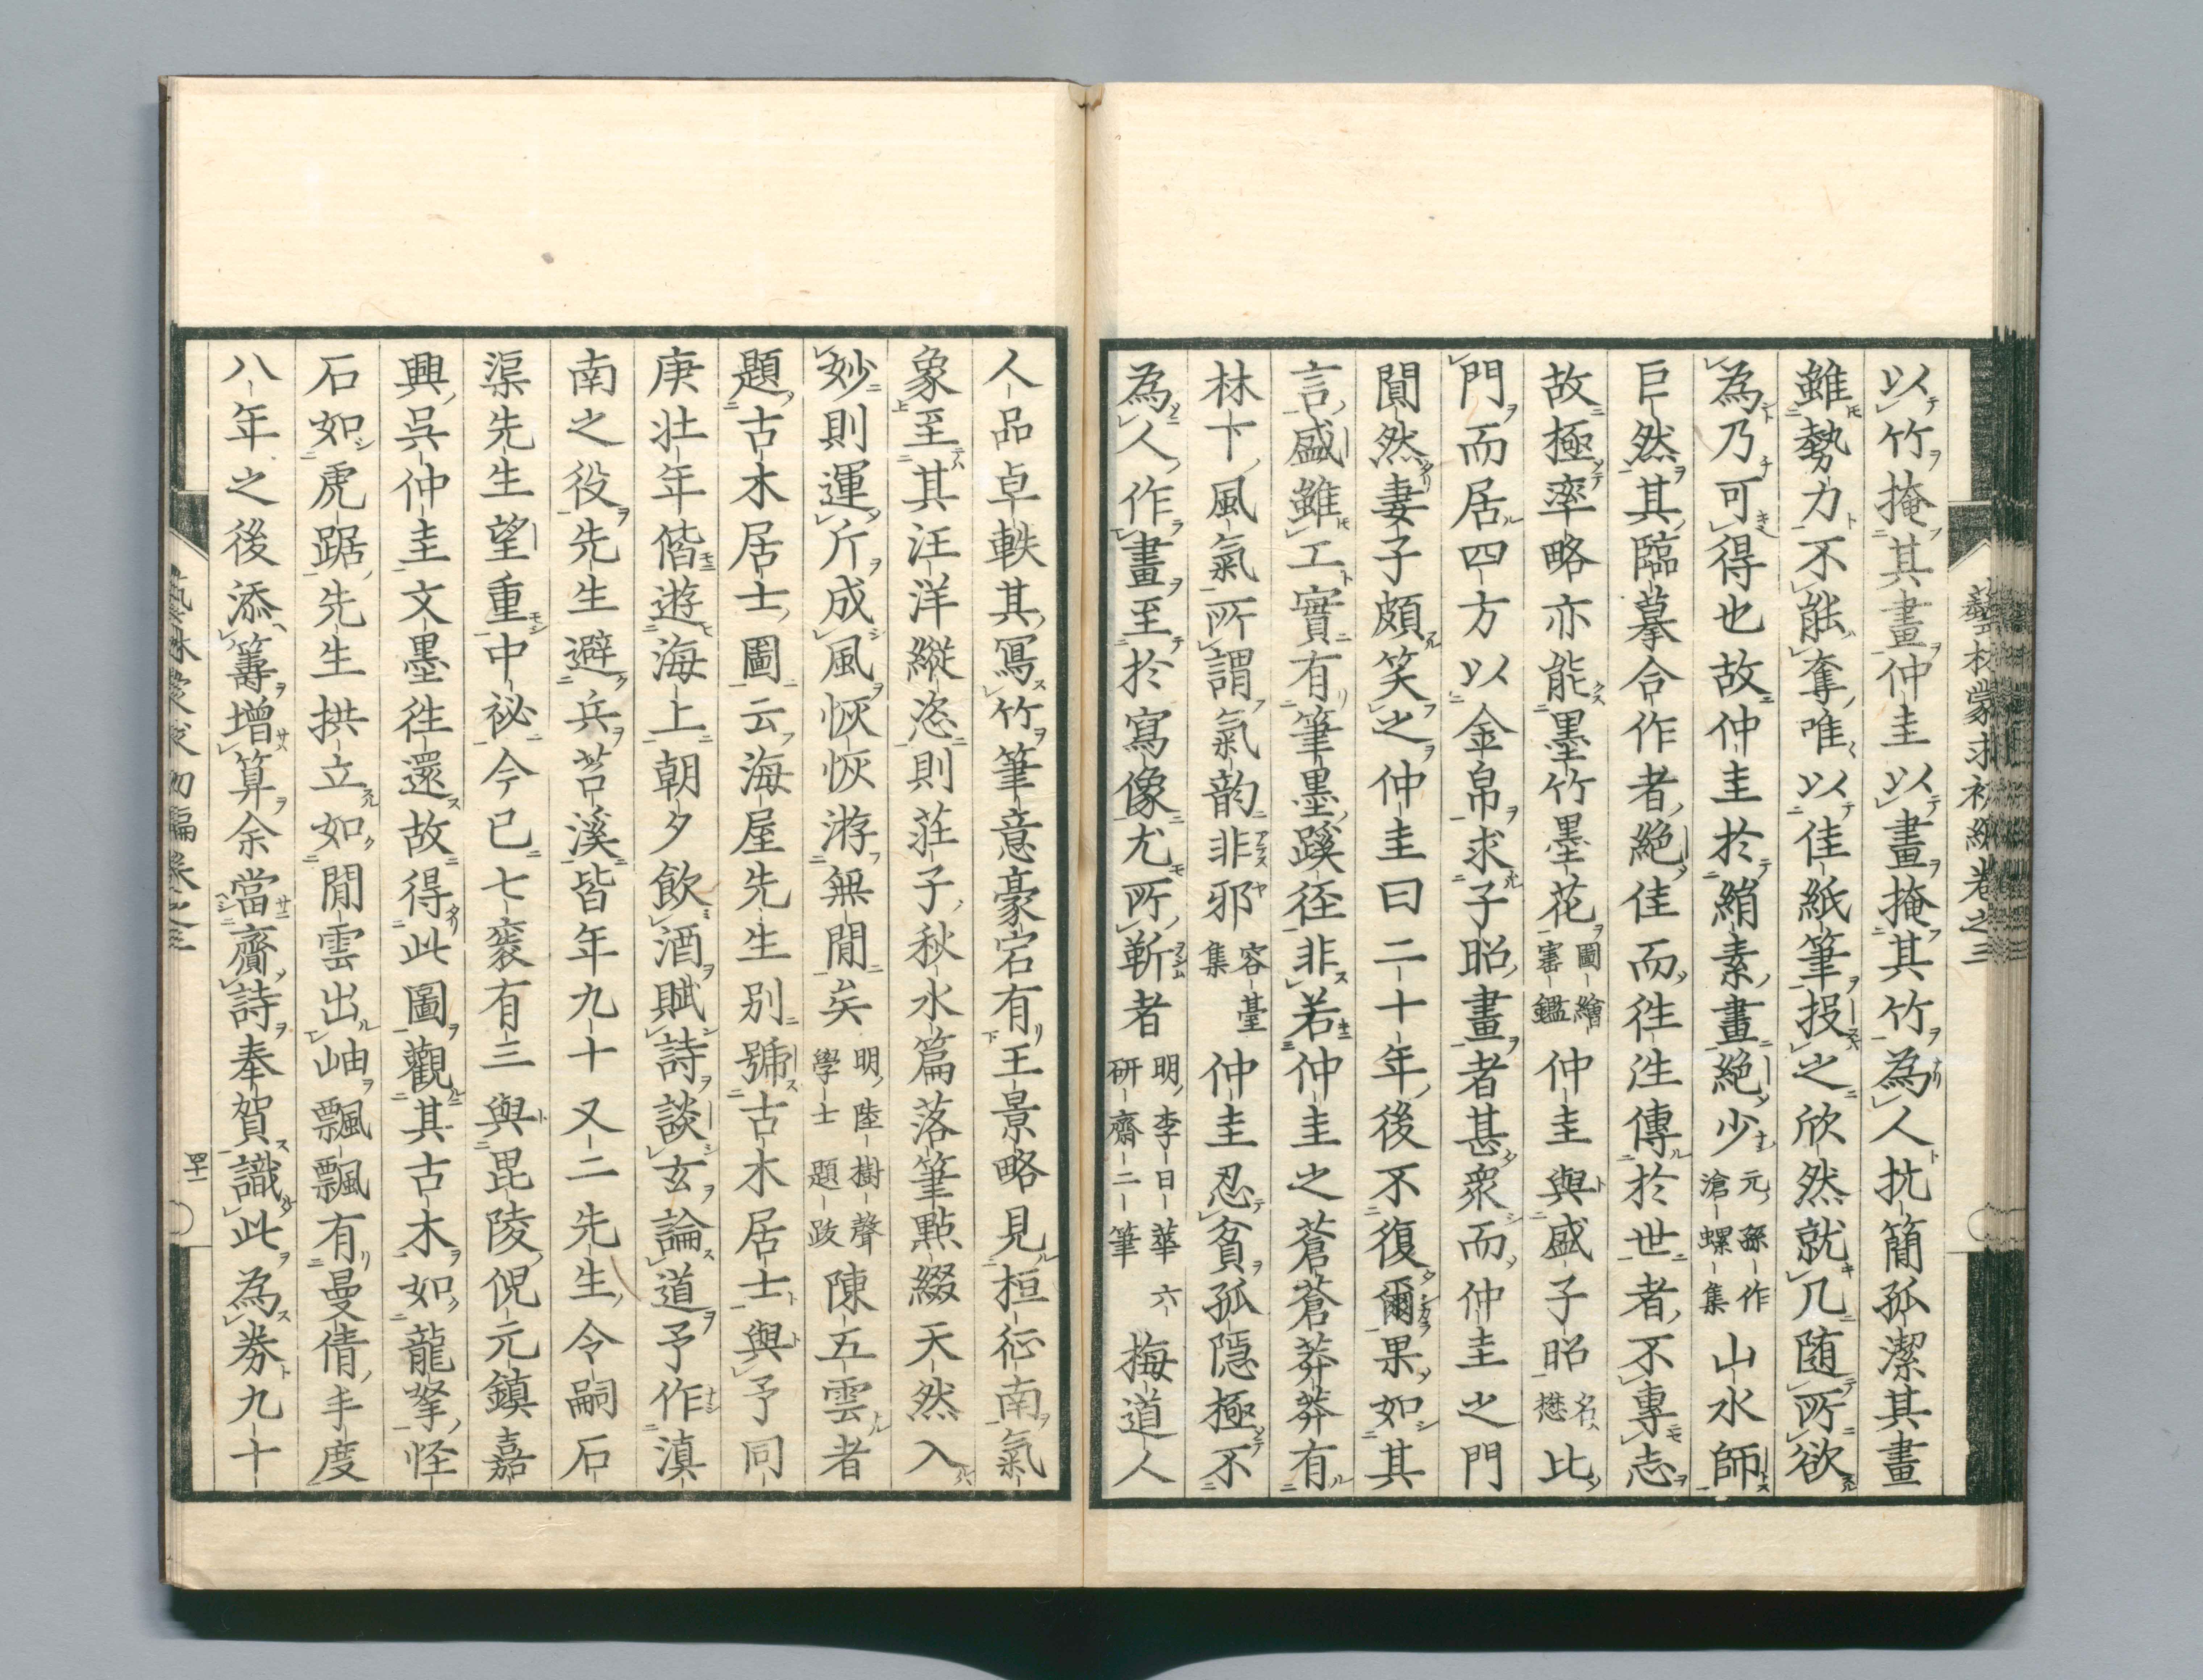 藝林蒙求初編卷之三
以竹掩其畫仲圭以畫掩其竹為人抗簡孤潔其畫
雖勢力不能奪唯以佳紙筆投之欣然就几随所欲
為乃可得也故仲圭於絹素畫絕少元孫作滄螺集山水師
巨然其臨摹合作者絕佳而往往傳於世者不專志
故極率略亦能墨竹墨花圖繪寳鑑仲圭與盛子昭名懋比
門而居四方以金帛求子昭畫者甚衆而仲圭之門
闃然妻子頗笑之仲圭曰二十年後不復爾果如其
言盛雖工實有筆墨蹊徑非若仲圭之蒼蒼莽莽有
林下風氣所謂氣韵非邪容臺集仲圭忍貧孤隱極不
為人作畫至於寫像尤所靳者明李日華六研齋二筆梅道人
人品卓軼其寫竹筆意豪宕有王景略見桓征南氣
象至其汪洋縱恣則莊子秋水篇落筆點綴天然入
妙則運斤成風恢恢游無閒矣明陸樹聲學士題跋陳五雲者
題古木居士圖云海屋先生別號古木居士與予同
庚壯年偕遊海上朝夕飲酒賦詩談玄論道予作滇
南之役先生避兵苕溪皆年九十又二先生令嗣石
渠先生望重中祕今已七袠有三與毘陵倪元鎮嘉
興吳仲圭文墨往還故得此圖觀其古木如龍拏怪
石如虎踞先生拱立如閒雲出岫飄飄有曼倩手度
八年之後添籌增算余當齎詩奉賀識此為券九十
四十一